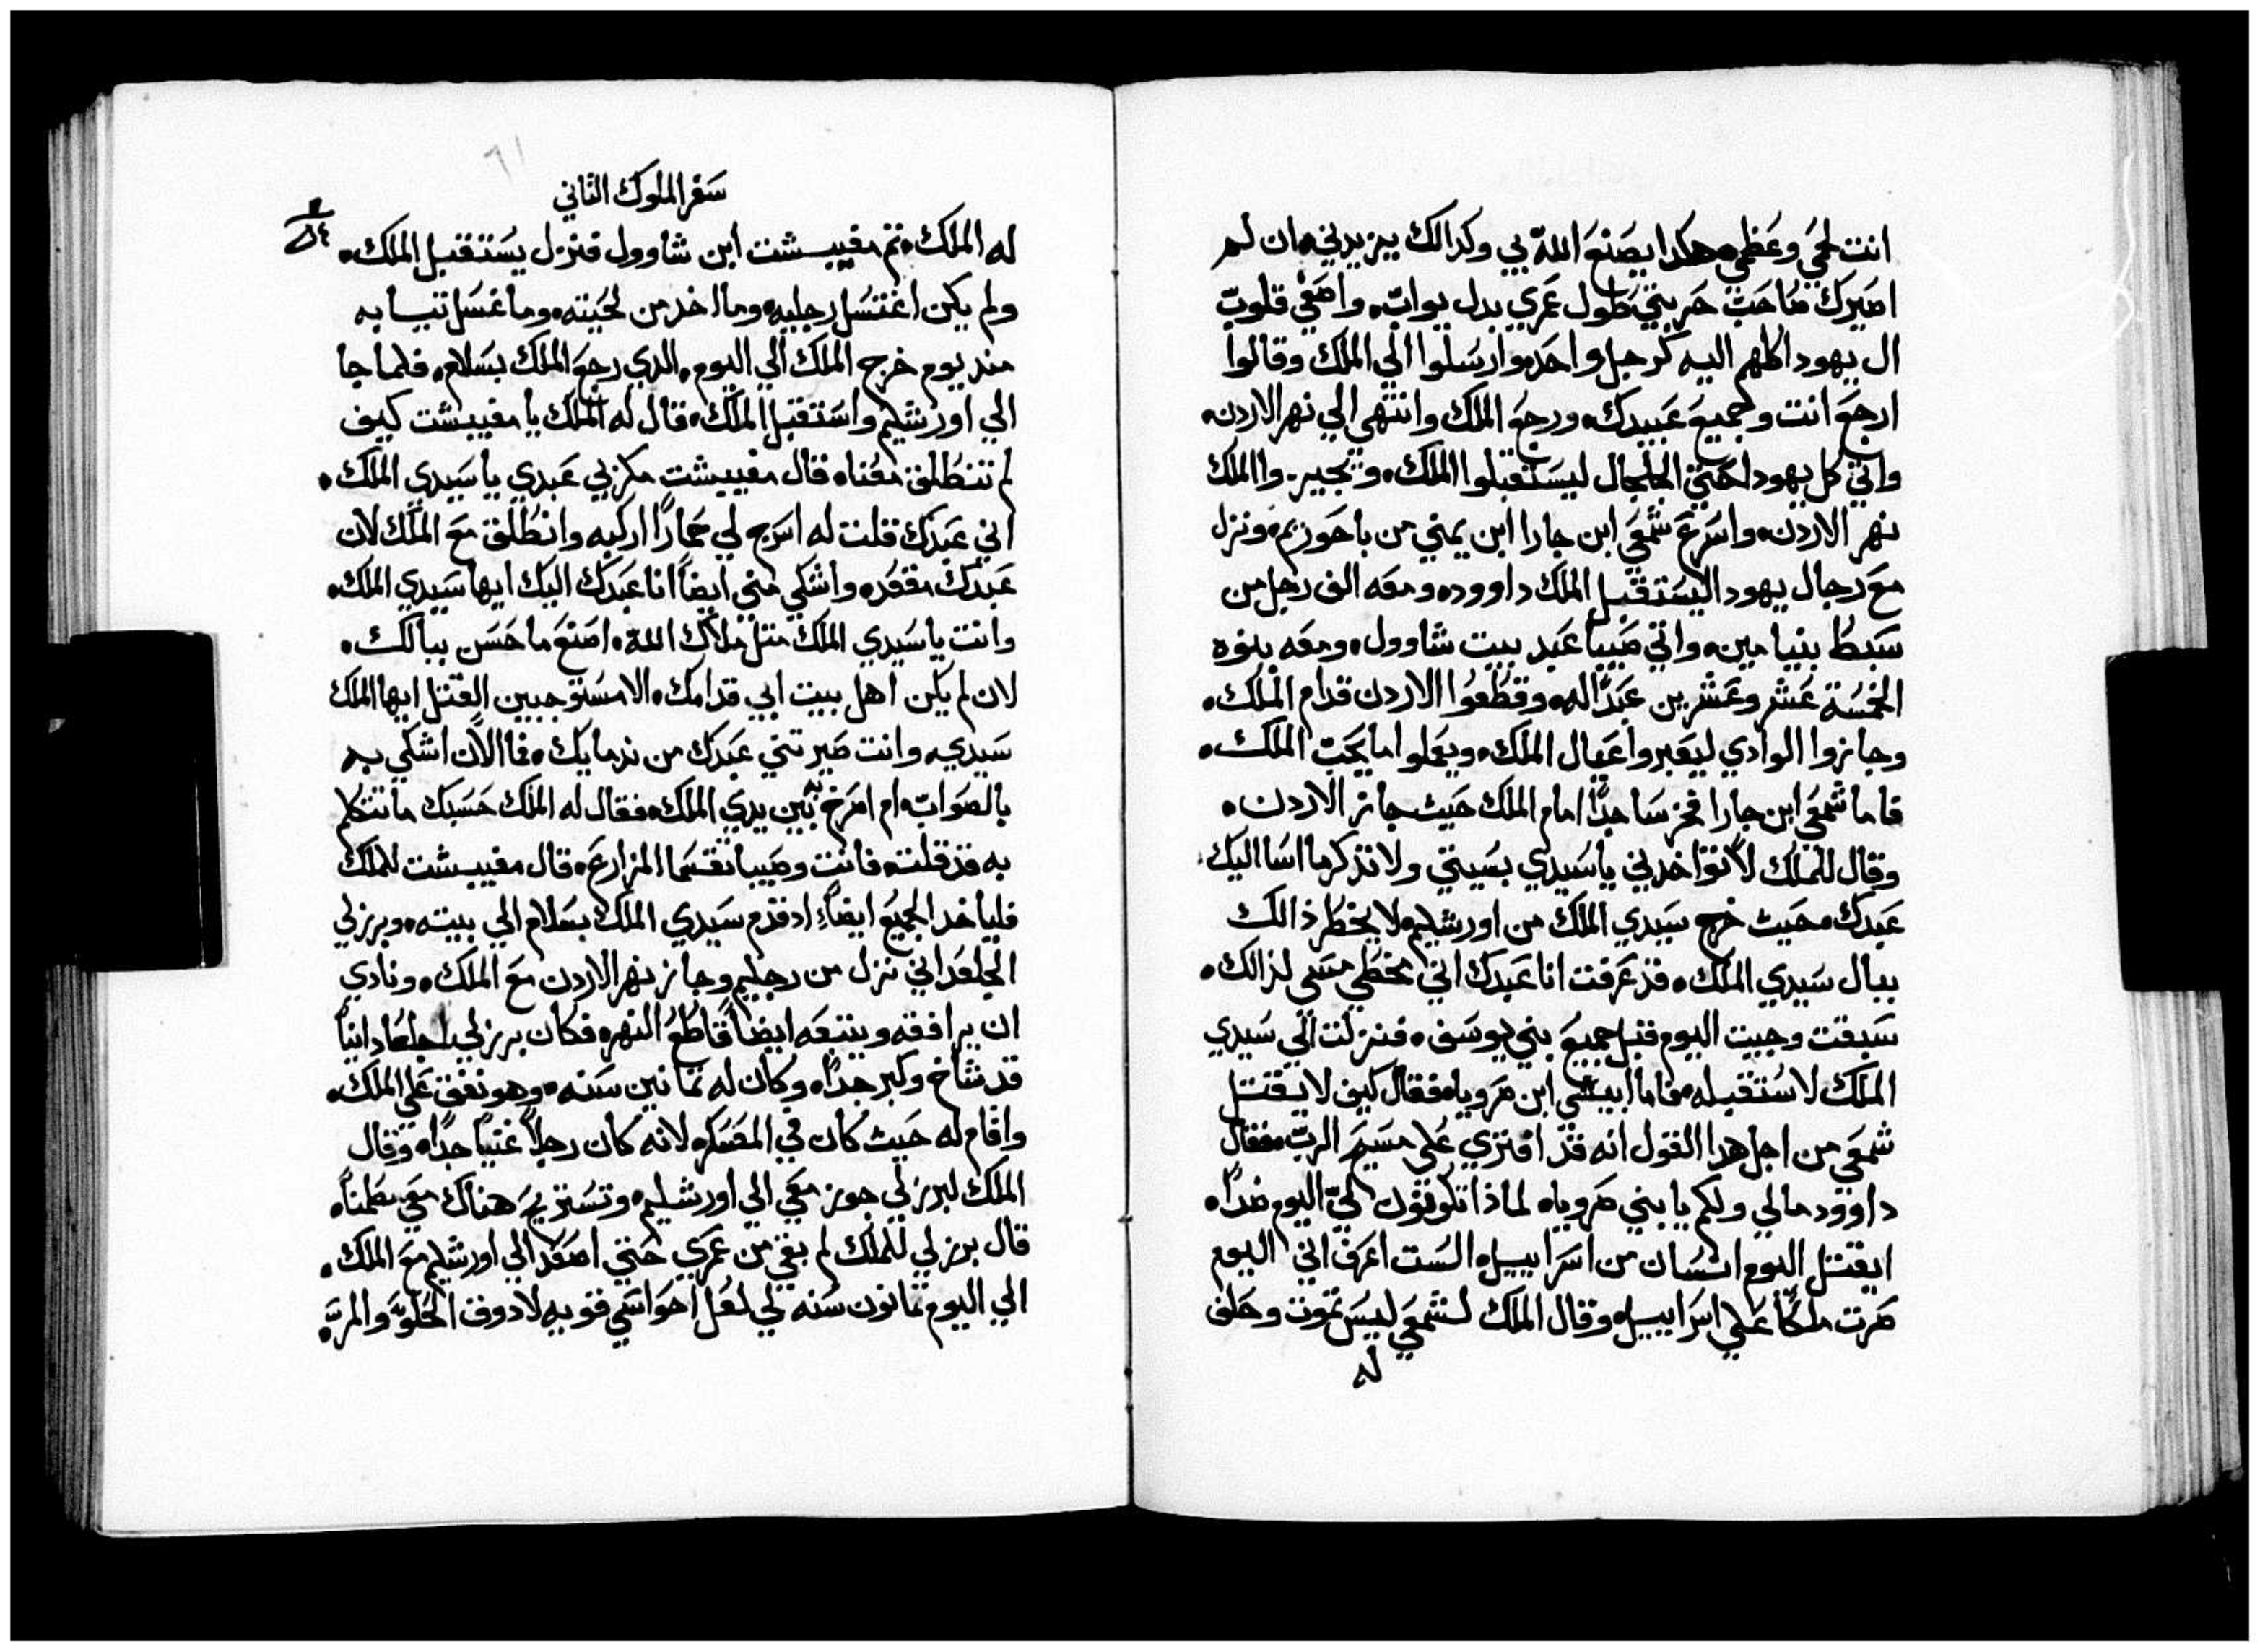 انت لحمي وعظمي هكدا يصنع الله بي وكدالك يزيدني ان لم
اصيرك صاحب حربتي طول عمري بدل يواب واصغي قلوب
ال يهودا كلهم اليه كرجل واحد وارسلوا الي الملك وقالوا
ارجع انت وجميع عبيدك ورجع الملك وانتهي الي نهر الاردن
واتي كل يهودا حتي الجلجال ليستقبلوا الملك ويجيروا الملك
نهر الاردن واسرع شمعي ابن جارا ابن يمني من باحوريم ونزل
مع رجال يهودا ليستقبل الملك داوود ومعه الف رجل من
سبط بنيامين واتي صيبا عبد بيت شاوول ومعه بنوه
الخمسة عشر وعشرين عبدا له وقطعوا الاردن قدام الملك
وجازوا الوادي ليعبروا عيال الملك ويعملوا ما يحب الملك
فاما شمعي ابن جارا فخر ساجدا امام الملك حيث جاز الاردن
وقال للملك لا تواخدني ياسيدي بسيتي ولا تذكر ما اسا اليك
عبدك حيث خرج سيدي الملك من اورشليم لا يخطر ذالك
ببال سيدي الملك قد عرفت انا عبدك اني مخطي مسي لذالك
سبقت وجيت اليوم قبل جميع بني يوسف فنزلت الي سيدي
الملك لاستقبله فاما ابيشي ابن صرويا فقال كيف لا يقتل
شمعي من اجل هدا القول انه قد افتري علي مسيح الرب فقال
داوود مالي ولكم يا بني صرويا لماذا تكونون لي اليوم ضدا
ايقتل اليوم انسان من اسراييل الست اعرف اني اليوم
صرت ملكا علي اسراييل وقال الملك لشمعي ليس تموت وحلف
له
سفر الملوك الثاني
له الملك ثم مفيبشت ابن شاوول فنزل يستقبل الملك
ولم يكن اغتسل رجليه وما اخد من لحيته وما غسل تيابه
مند يوم خرج الملك الي اليوم الدي رجع الملك بسلام فلما جا
الي اورشليم واستقبل الملك قال له الملك يا مفيبشت كيف
لم تنطلق معنا قال مفيبشت مكر بي عبدي يا سيدي الملك
اني عبدك قلت له اسرج لي حمارا اركبه وانطلق مع الملك لان
عبدك مقعد واشكي مني ايضا انا عبدك اليك ايها سيدي الملك
وانت يا سيدي الملك متل ملاك الله اصنع ما حسن ببالك
لان لم يكن اهل بيت ابي قدامك الا مستوجبين القتل ايها الملك
سيدي وانت صيرتني عبدك من ندمايك فما الان اشكي به
بالصواب ام اصرخ به بين يدي الملك فقال له الملك حسبك ما تتكلم
به قد قلت فانت وصيبا تقسما المزارع قال مفيبشت للملك
فليا خد الجميع ايضا اد قدم سيدي الملك بسلام الي بيته وبرزلي
الجلعداني نزل من رجليم وجاز نهر الاردن مع الملك ونادي
ان يرافقه ويتبعه ايضا قاطع النهر فكان برزلي الجلعادانيا
قد شاخ وكبر جدا وكان له تمانين سنه وهو نفق علي الملك
واقام له حيث كان في المعسكر لانه كان رجلا غنيا جدا وقال
الملك لبرزلي جوز معي الي اورشليم وتستريح هناك معي مطمنا
قال برزلي للملك لم بقي من عمري حتي اصعد الي اورشليم مع الملك
الي اليوم تمانون سنه لي لعل احواسي قويه لادوق الحلو والمر